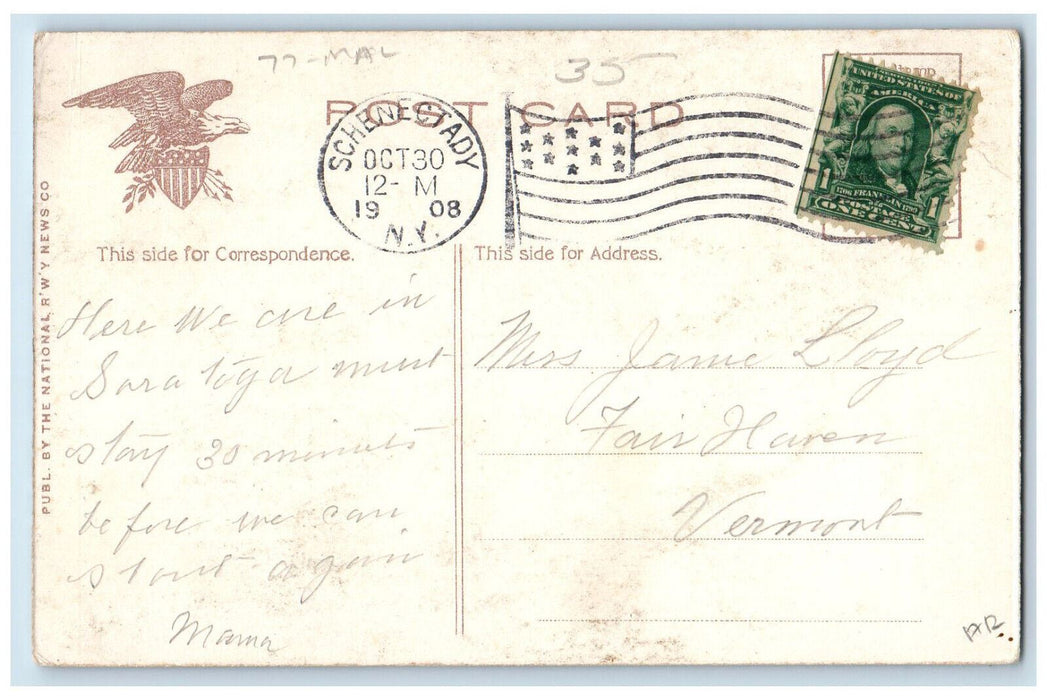 77-MAL
35
POST CARD
SCHENECTADY
OCT 30
12- M
19 08
N.Y.
UNITED STATES OF
AMERICA
1 1
POSTAGE
ONE CENT
PUBL. BY THE NATIONAL R'W'Y NEWS CO
This side for Correspondence.
Here We are in
Sara toga must
stay 30 minuts
before we can
start again
Mama
This side for Address.
Miss Janie Lloyd
Fair Haven
Vermont